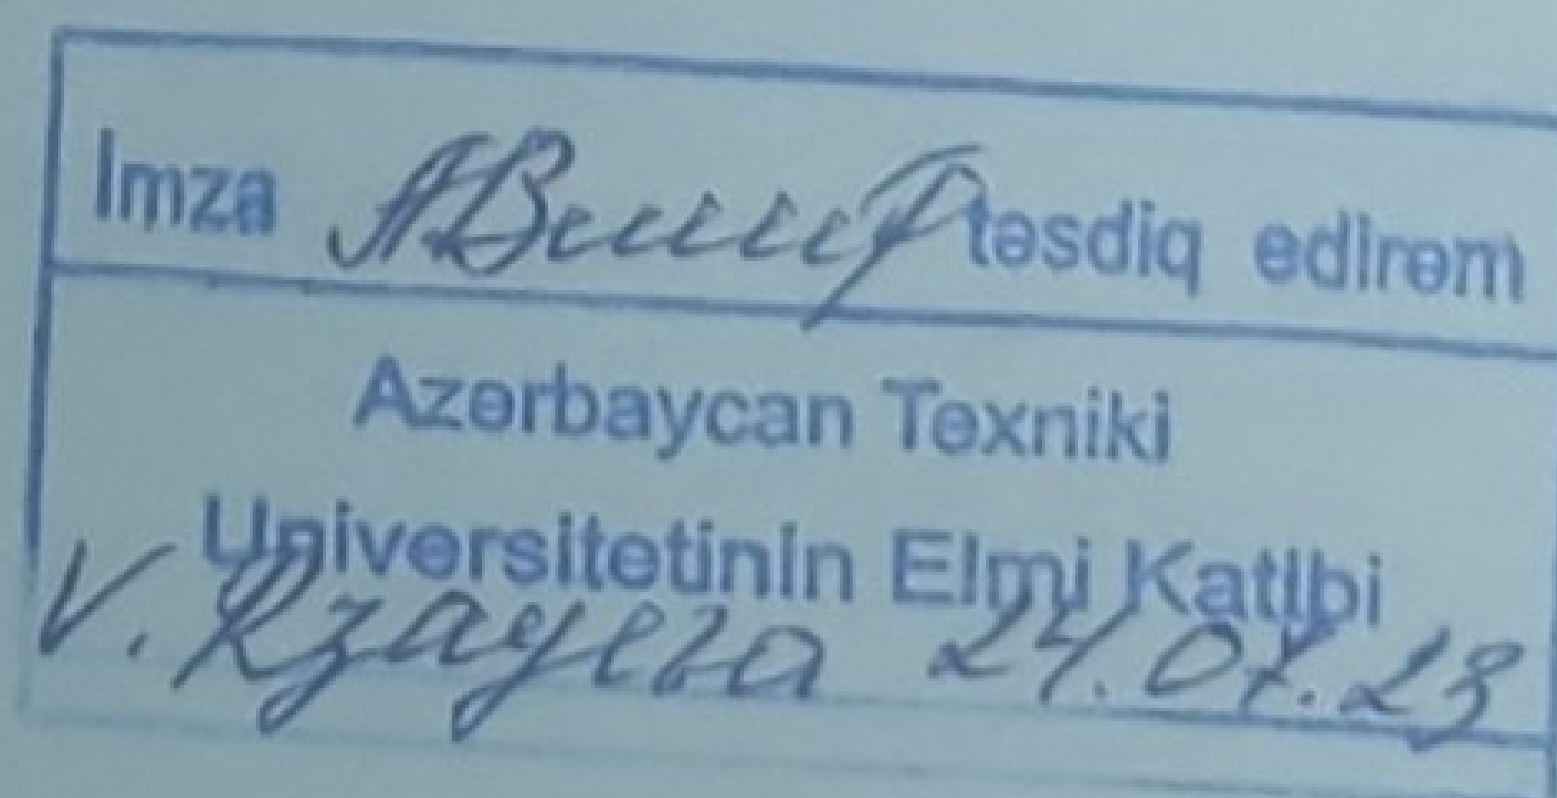 Imza təsdiq edirəm
Azərbaycan Texniki
Universitetinin Elmi Katibi
V. Rzayeva 24.07.23